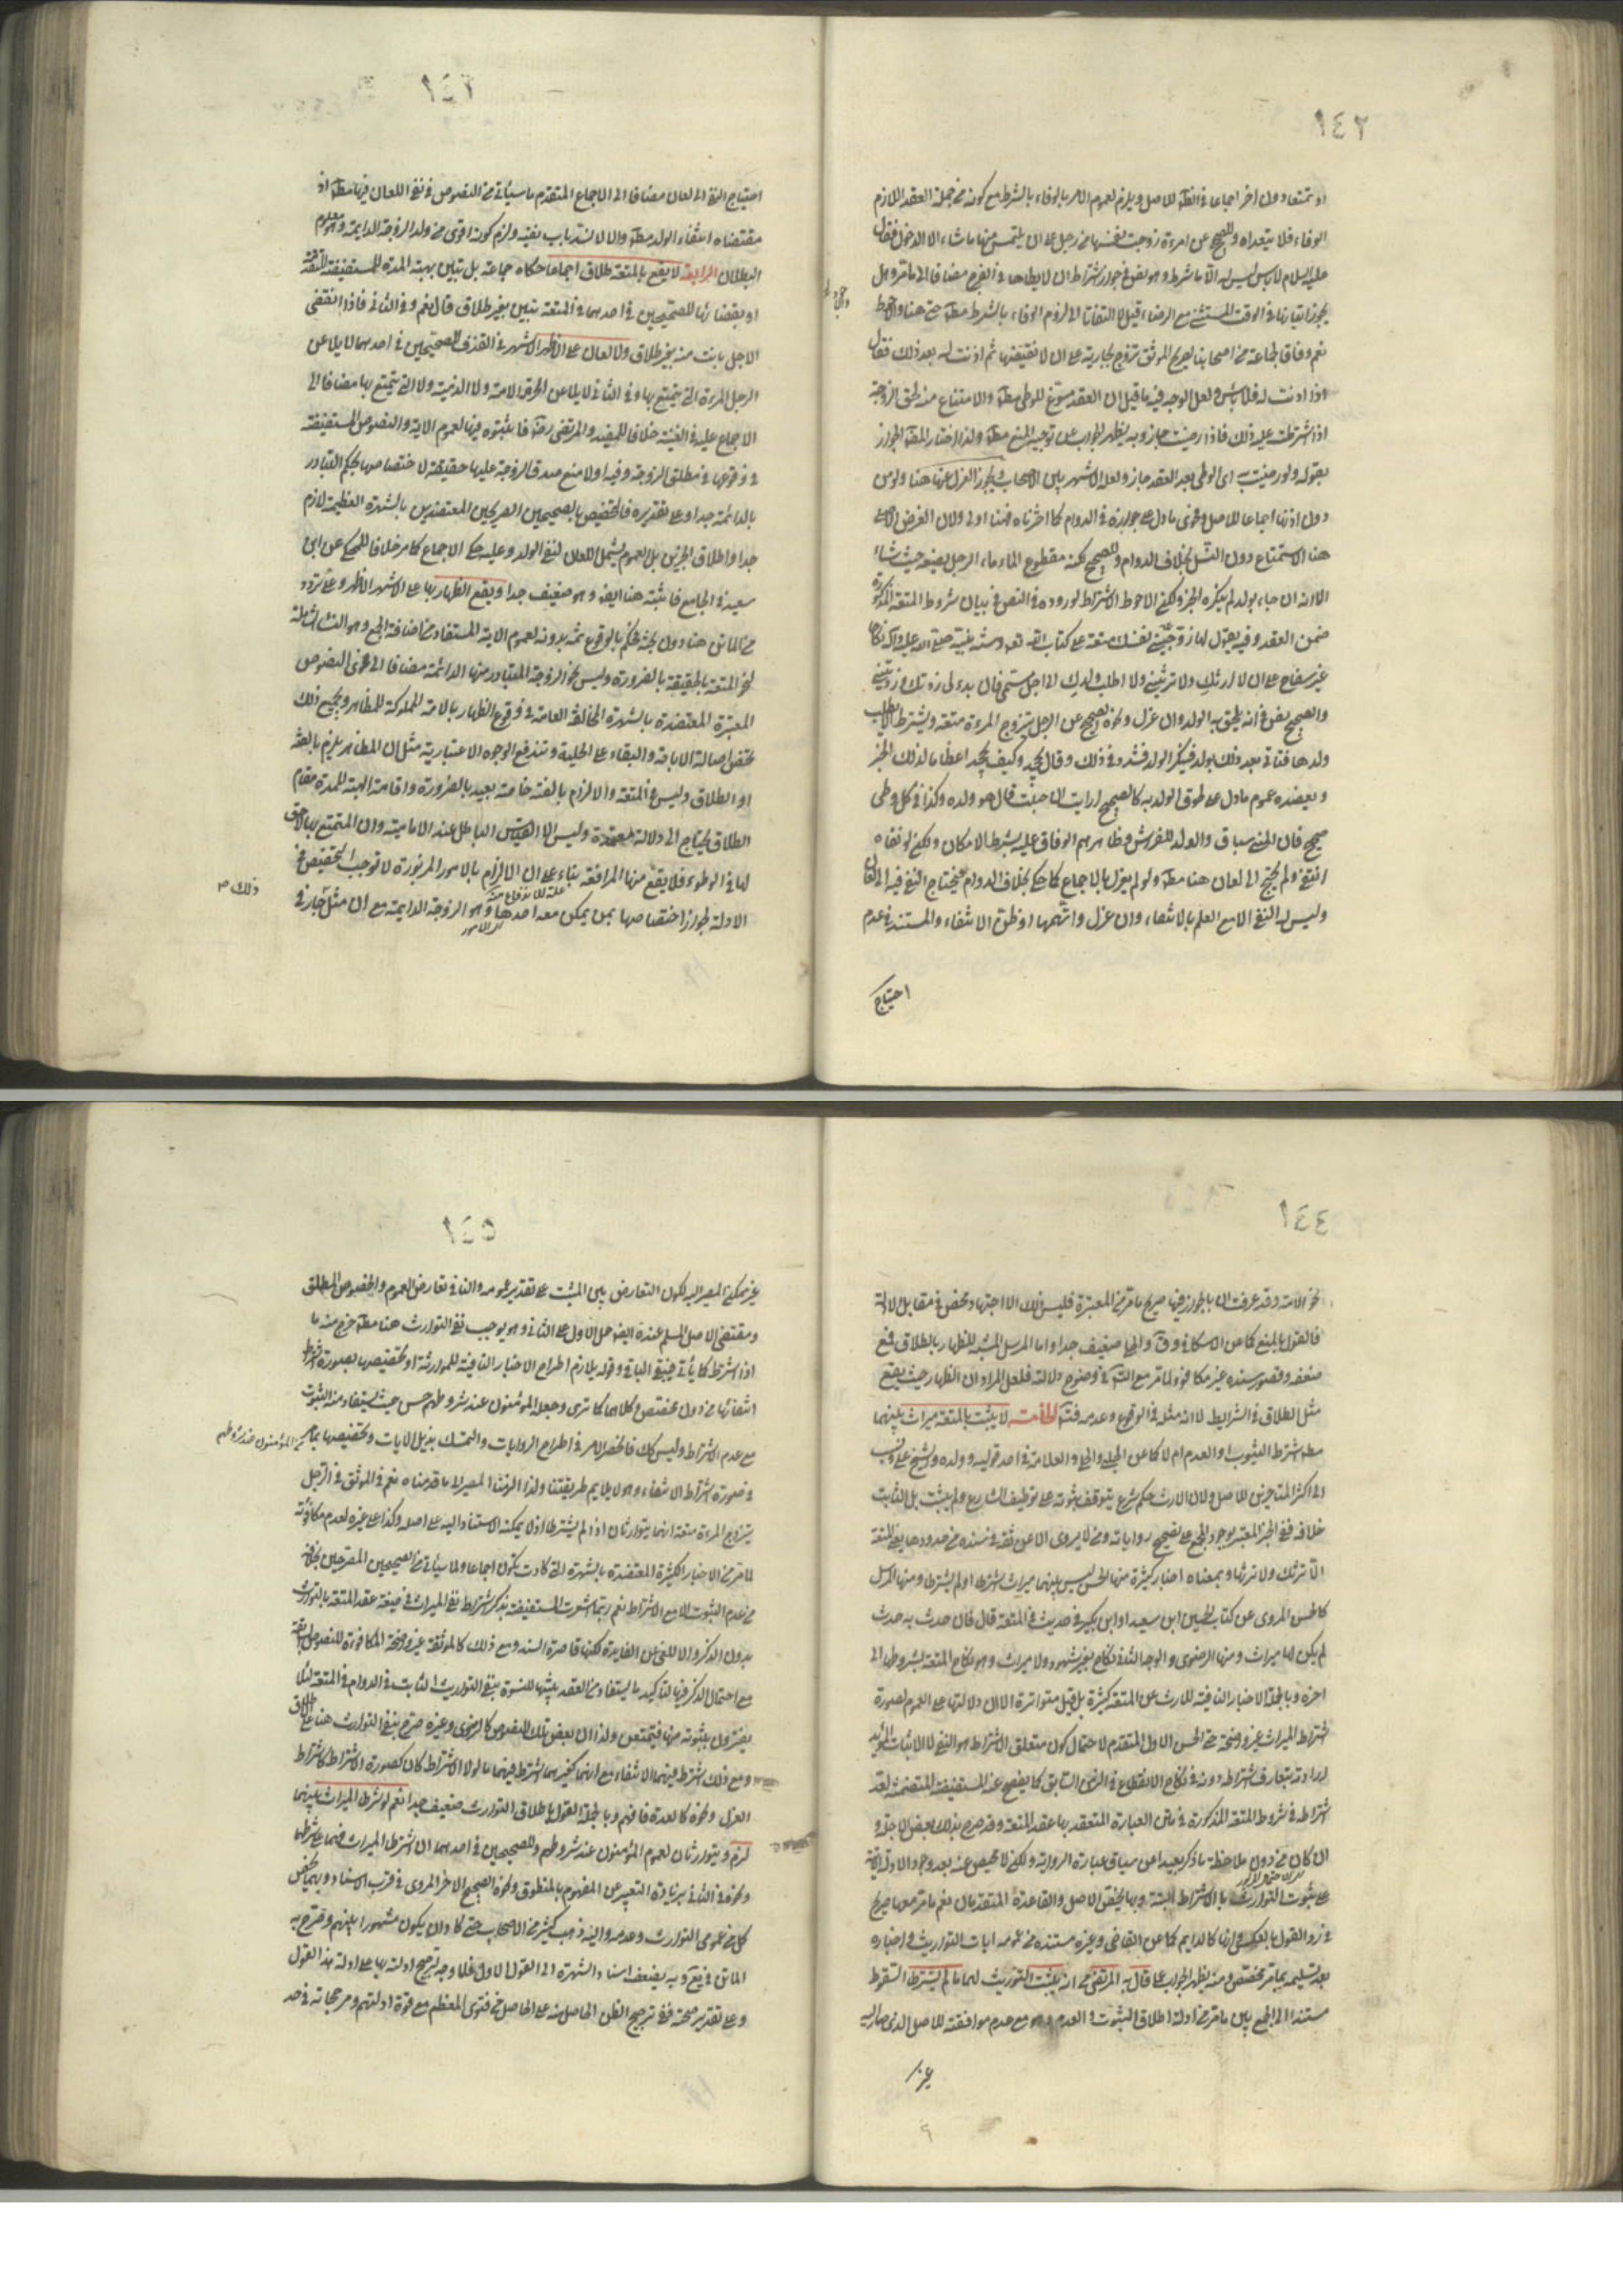 ١٤٢
او تمتعا دون اخر اجماعا في الظ للاصل ويلزم لعموم الامر بالوفاء بالشرط مع كونه من جملة العقد اللازم
الوفاء فلا يتعداه وللصحيح عن امرءة زوجت نفسها من رجل على ان يلتمس منها ما شاء الا الدخول فقال
عليه السلام لا باس ليس له الا ما شرط وهو نص في جواز اشتراط ان لا يطاها في الفرج مضافا الى ما مر وهل
يجوز اتيانها في الوقت المستثنى مع الرضاء قيل لا التفاتا الى لزوم الوفاء بالشرط مط حتى هنا والاحوط
نعم وفاقا لجماعة من اصحابنا لصريح الموثق تزوج بجارية على ان لا يفتضها ثم اذنت له بعد ذلك فقال
اذا اذنت له فلا باس ولعل الوجه فيه ما قيل ان العقد مسوغ للوطي مط والامتناع منه لحق الزوجة
اذا اشترطت عليه ذلك فاذا رضيت جاز وبه يظهر الجواب عن توجيه المنع مط ولذا اختار المص الجواز
بقوله ولو رضيت به اى الوطي بعد العقد جاز ولعله الاشهر بين الاصحاب ويجوز العزل عنها هنا ولو من
دون اذنها اجماعا للاصل وفحوى ما دل على جوازه في الدوام كما اخترناه فهنا اولى ولان الغرض الاصلي
هنا الاستمتاع دون النسل بخلاف الدوام وللصحيح لكنه مقطوع الماء ماء الرجل يضعه حيث شاء
الا انه ان جاء بولد لم ينكره الخبر ولكن الاحوط الاشتراط لوروده في النص في بيان شروط المتعة المذكورة
ضمن العقد وفيه يقول لها زوجيني نفسك متعة على كتاب الله تعالى وسنة نبيه صلى الله عليه وآله نكاحا
غير سفاح على ان لا ارثك ولا ترثيني ولا اطلب ولدك الى اجل مسمى فان بدء لى زدتك وزدتيني
والصحيح نص في انه يلحق به الولد وان عزل ونحوه الصحيح عن الرجل يتزوج المرءة متعة ويشترط الا يطلب
ولدها فتاتي بعد ذلك بولد فينكر الولد فشدد في ذلك وقال يجحد وكيف يجحد اعظاما لذلك الخبر
ويعضده عموم ما دل على لحوق الولد به كالصحيح ارايت ان حبلت قال هو ولده وكذا في كل وطى
صحيح فان المني سباق والولد للفراش وظاهرهم الوفاق عليه بشرط الامكان ولكن لو نفاه
انتفى ولم يحتج الى لعان هنا مط ولو لم يعزل بالاجماع كما حكي بخلاف الدوام فيحتاج النفي فيه الى لعان
وليس له النفي الا مع العلم بالانتفاء وان عزل واتهمها او ظن الانتفاء والمستند في عدم
احتياج
احتياج النفي الى لعان مضافا الى الاجماع المتقدم ما سيأتي من النصوص في نفي اللعان فيها مط اذ
مقتضاه انتفاء الولد مط والا لانسد باب نفيه ولزم كونه اقوى من ولد الزوجة الدايمة وهو معلوم
البطلان الرابعة لا يقع بالمتعة طلاق اجماعا حكاه جماعة بل تبين بهبة المدة للمستفيضة المتقدمة
او بقضائها للصحيحين في احدهما في المتعة تبين بغير طلاق قال نعم وفي الثاني فاذا انقضى
الاجل بانت منه بغير طلاق ولا لعان على الاظهر الاشهر في القذف للصحيحين في احدهما لا يلاعن
الرجل المرءة التي يتمتع بها وفي الثاني لا يلاعن الحر الامة ولا الذمية ولا التي يتمتع بها مضافا الى
الاجماع عليه في الغنية خلافا للمفيد والمرتضى رضه فاثبتوه فيها لعموم الاية والنصوص المستفيضة
في وقوعها في مطلق الزوجة وفيه اولا منع صدق الزوجة عليها حقيقة لاختصاصها بحكم التبادر
بالدائمة جدا وعلى تقديره فالتخصيص بالصحيحين الصريحين المعتضدين بالشهرة العظيمة لازم
جدا واطلاق الخبرين بل العموم يشمل اللعان لنفي الولد وعليه حكي الاجماع كما مر خلافا للمحكي عن ابن
سعيد في الجامع فاثبته هنا ايض وهو ضعيف جدا ويقع الظهار بها على الاشهر الاظهر وعلى تردد
من الماتن هنا دون بحثه فحكم بالوقوع ثمة بدونه لعموم الاية المستفاد من اضافة الجمع وهو النساء الشاملة
لنحو المتعة بالحقيقة بالضرورة وليس نحو الزوجة المتبادر منها الدائمة مضافا الى فحوى النصوص
المعتبرة المعتضدة بالشهرة المخالفة العامة في وقوع الظهار بالامة المملوكة للمظاهر وبجميع ذلك
تخص اصالة الاباحة والبقاء على الحلية وتندفع الوجوه الاعتبارية مثل ان المظاهر يلزم بالفئة
او الطلاق وليس في المتعة والالزام بالفئة خاصة بعيد بالضرورة واقامة الهبة للمدة مقام
الطلاق يحتاج الى دلالة معتمدة وليس الا القياس الباطل عند الامامية وان المتمتع بها لا حق
لها في الوطؤ فلا يقع منها المرافعة بناء على ان الالزام بالامور المزبورة لا توجب التخصيص في
الادلة لجواز اختصاصها بمن يمكن معه احدها وهو الزوجة الدايمة مع ان مثل جار في
ذلك ص
١٤٤
نحو الامة وقد عرفت انا بالجواز فيها صريح ما مر من المعتبرة فليس ذلك الا اجتهاد محض في مقابل الادلة
فالقول بالمنع كما عن الاسكافي وق والحلي ضعيف جدا واما المرسل المشبه للظهار بالطلاق فمع
ضعفه وقصور سنده غير مكافؤ لما مر مع الت‍ في وضوح دلالته فلعل المراد ان الظهار حيث يقع
مثل الطلاق في الشرايط لا انه مثله في الوقوع وعدمه فت‍ الخامسة لا يثبت بالمتعة ميراث بينهما
مط شرط الثبوت او العدم ام لا كما عن الحلبي والحلي والعلامة في احد قوليه وولده والشيخ علي ونسب
الى اكثر المتاخرين للاصل ولان الارث حكم شرعي يتوقف ثبوته على توظيف الشارع ولم يثبت بل الثابت
خلافه ففي الخبر المعتبر بوجود المجمع على تصحيح رواياته ومن لا يروى الا عن ثقة في سنده من حدودها يعني المتعة
الا ترثك ولا ترثها وبمعناه اخبار كثيرة منها الحسن ليس بينهما ميراث اشترط او لم يشترط ومنها المرسل
كالحسن المروى عن كتاب الحسين ابن سعيد او ابن بكير في حديث في المتعة قال فان حدث به حدث
لم يكن لها ميراث ومنها الرضوى والوجه الثاني نكاح بغير شهود ولا ميراث وهو نكاح المتعة بشروطها الى
اخره وبالجملة الاخبار النافية للارث عن المتعة كثيرة بل قيل متواترة الا ان دلالتها على العموم لصورة
اشتراط الميراث غير واضحة حتى الحسن الاول المتقدم لاحتمال كون متعلق الاشتراط هو النفي لا الاثبات المؤيد
ارادته بتعارف اشتراطه دونه في نكاح الانقطاع في الزمن السابق كما يفصح عنه المستفيضة المتضمنة لعد
اشتراطه في شروط المتعة المذكورة في متن العبارة المنعقد بها عقد المتعة وقد صرح بذلك بعض الاجلة و
ان كان من دون ملاحظة ما ذكر بعيدا عن سياق عبارة الرواية ولكن لا محيص عنه بعد وجود الادلة الاتية
على ثبوت التوارث بالاشتراط البتة وبها يخص الاصل والقاعدة المتقدمان نعم ما مر معها صريح
في رد القول بالعكس وانها كالدايم كما عن القاضي وغيره مستنده من عموم ايات التوارث في اخباره
بعد تسليمه بما مر مخصص ومنه يظهر الجواب عما قال به المرتضى من انه يثبت التوريث لهما ما لم يشترط السقوط
مستندا الى الجمع بين ما مر من ادلة اطلاق الثبوت والعدم وهو مع عدم موافقته للاصل الذى صار اليه
غير
١٤٥
غير ممكن المصير اليه لكون التعارض بين المثبت على تقدير عمومه والنافي تعارض العموم والخصوص المطلق
ومقتضى الاصل المسلم عنده ايض حمل الاول على الثاني وهو يوجب نفي التوارث هنا مط خرج منه ما
اذا اشترط كما يأتي فيبقى الباقي وقوله يلازم اطراح الاخبار النافية للموارثة او تخصيصها بصورة اشتراط
انتفائها من دون مخصص وكلاهما كما ترى وجعله المؤمنون عند شروطهم حسن حيث يستفاد منه الثبوت
مع عدم الاشتراط وليس كك فانحصر الامر في اطراح الروايات والتمسك بذيل الايات وتخصيصها بما مر
من المؤمنون عند شروطهم
في صورة اشتراط الانتفاء وهو لا يلايم طريقتنا ولذا الزمنا المصير الى ما قدمناه نعم في الموثق في الرجل
يتزوج المرءة متعة انهما يتوارثان اذا لم يشترطا اذ لا يمكنه الاستناد اليه على اصله وكذا على غيره لعدم مكافؤته
لما مر من الاخبار الكثيرة المعتضدة بالشهرة التي كادت تكون اجماعا ولما سيأتي من الصحيحين المصرحين بخلافه
من عدم الثبوت الا مع الاشتراط نعم ربما اشعرت المستفيضة بذكر اشتراط نفي الميراث في صيغة عقد المتعة بالتوارث
بدون الذكر والا للغى عن الفايدة لكنها قاصرة السند ومع ذلك كالموثقة غير واضحة المكافؤة للنصوص السابقة
مع احتمال الذكر فيها لتاكيد ما يستفاد من العقد بينهما للنسوة بنفي التوارث الثابت في الدوام في المتعة لئلا
يغترون بثبوته منها فيمتعن ولذا ان بعض تلك النصوص كالرضوى وغيره صرح بنفي التوارث هنا على الاطلاق
ومع ذلك اشترط فيهما الانتفاء مع انهما كغيرهما اشترط فيهما ما لولا الاشتراط كان كصورة الاشتراط كاشتراط
العزل ونحوه كالعدة فافهم وبالجملة القول باطلاق التوارث ضعيف جدا نعم لو شرط الميراث بينهما
لزم ويتوارثان لعموم المؤمنون عند شروطهم وللصحيحين في احدهما ان اشترطا الميراث فهما على شرطهما
ونحوه في الثاني بزيادة التعبير عن المفهوم بالمنطوق ونحوه الصحيح الاخر المروى في قرب الاسناد وبهما يخص
كل من عمومي التوارث وعدمه واليه ذهب كثير من الاصحاب حتى كاد ان يكون مشهورا بينهم وصرح به
الماتن في يع وبه يضعف اسناد الشهرة الى القول الاول فلا وجه لترجيح ادلته بها على ادلة هذا القول
وعلى تقدير صحته ففي ترجيح الظن الحاصل منه على الحاصل من فتوى المعظم مع قوة ادلتهم ومرجحاته في حد